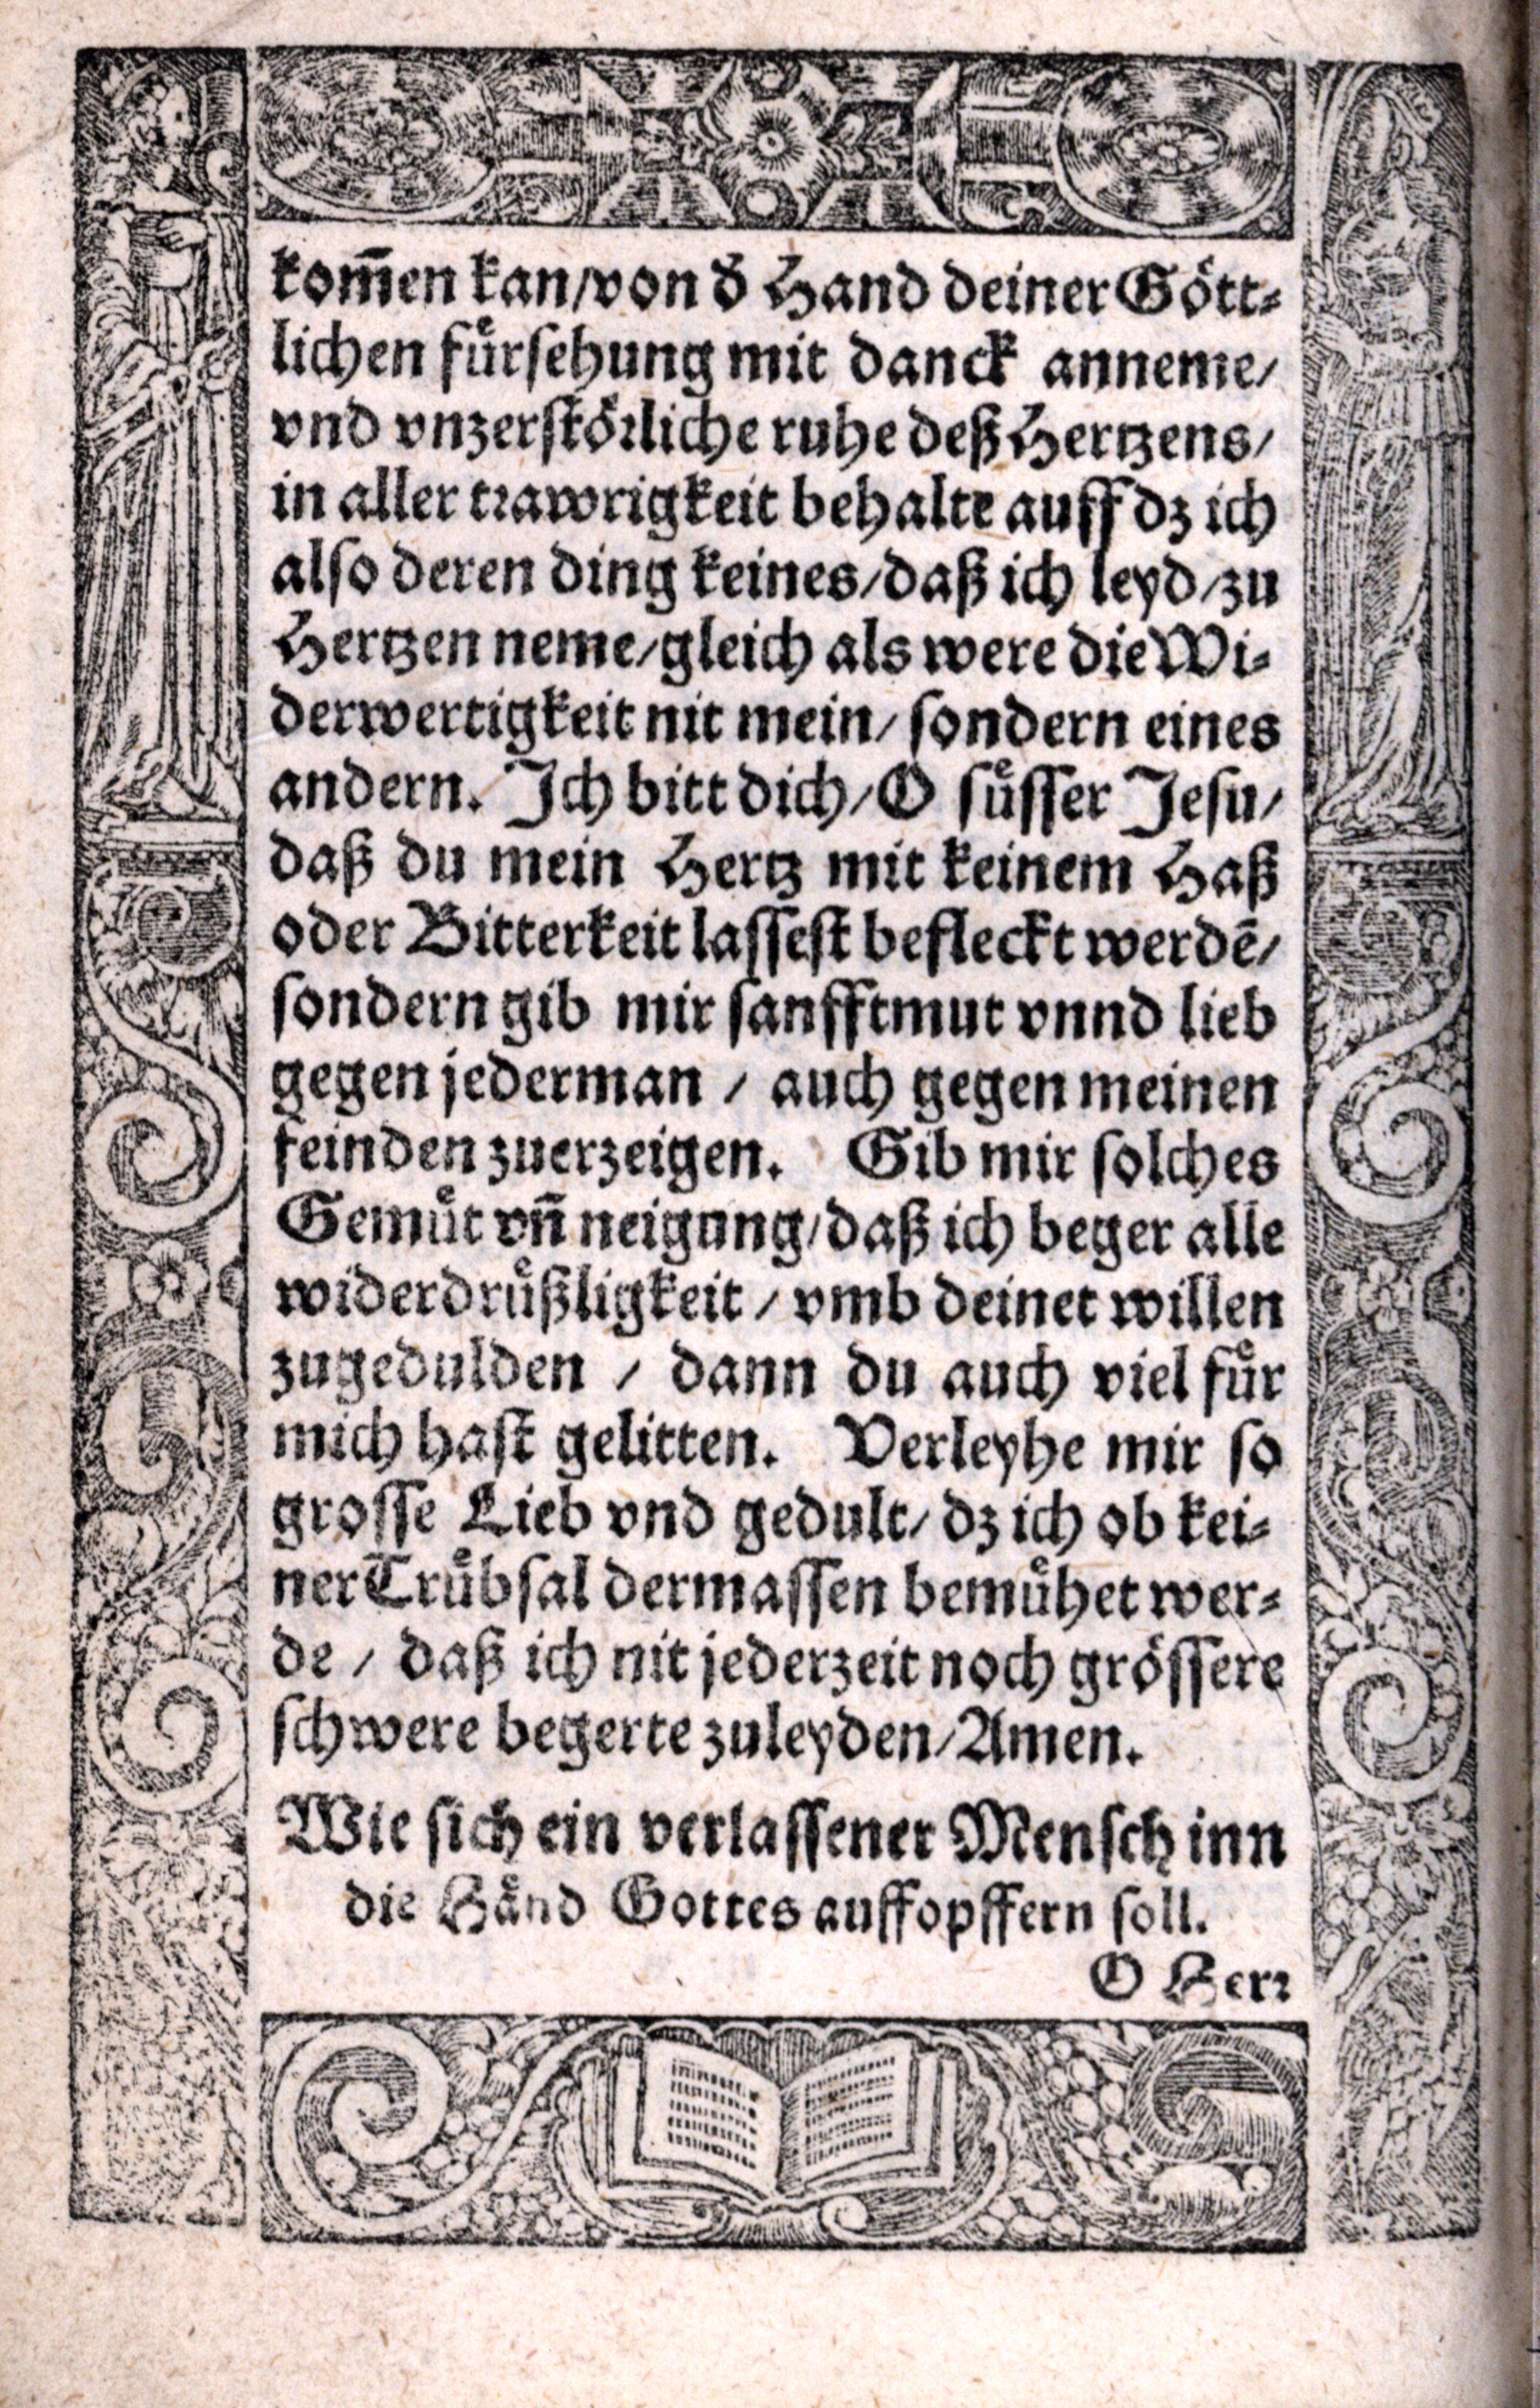 kom̃en kan/von d̕ Hand deiner Goͤtt⸗
lichen fuͤrsehung mit danck anneme/
vnd vnzerstoͤrliche ruhe deß Hertzens/
in aller trawrigkeit behalte auff dz ich
also deren ding keines/daß ich leyd/zu
Hertzen neme/gleich als were die Wi⸗
derwertigkeit nit mein/ sondern eines
andern. Ich bitt dich/O suͤsser Jesu/
daß du mein Hertz mit keinem Haß
oder Bitterkeit lassest befleckt werdē/
sondern gib mir sanfftmut vnnd lieb
gegen jederman / auch gegen meinen
feinden zuerzeigen. Gib mir solches
Gemuͤt vñ neigung/daß ich beger alle
widerdruͤßligkeit / vmb deinet willen
zugedulden / dann du auch viel fuͤr
mich hast gelitten. Verleyhe mir so
grosse Lieb vnd gedult/ dz ich ob kei⸗
ner Truͤbsal dermassen bemuͤhet wer⸗
de / daß ich nit jederzeit noch groͤssere
schwere begerte zuleyden/Amen.
Wie sich ein verlassener Mensch inn
die Haͤnd Gottes auffopffern soll.
O Herr